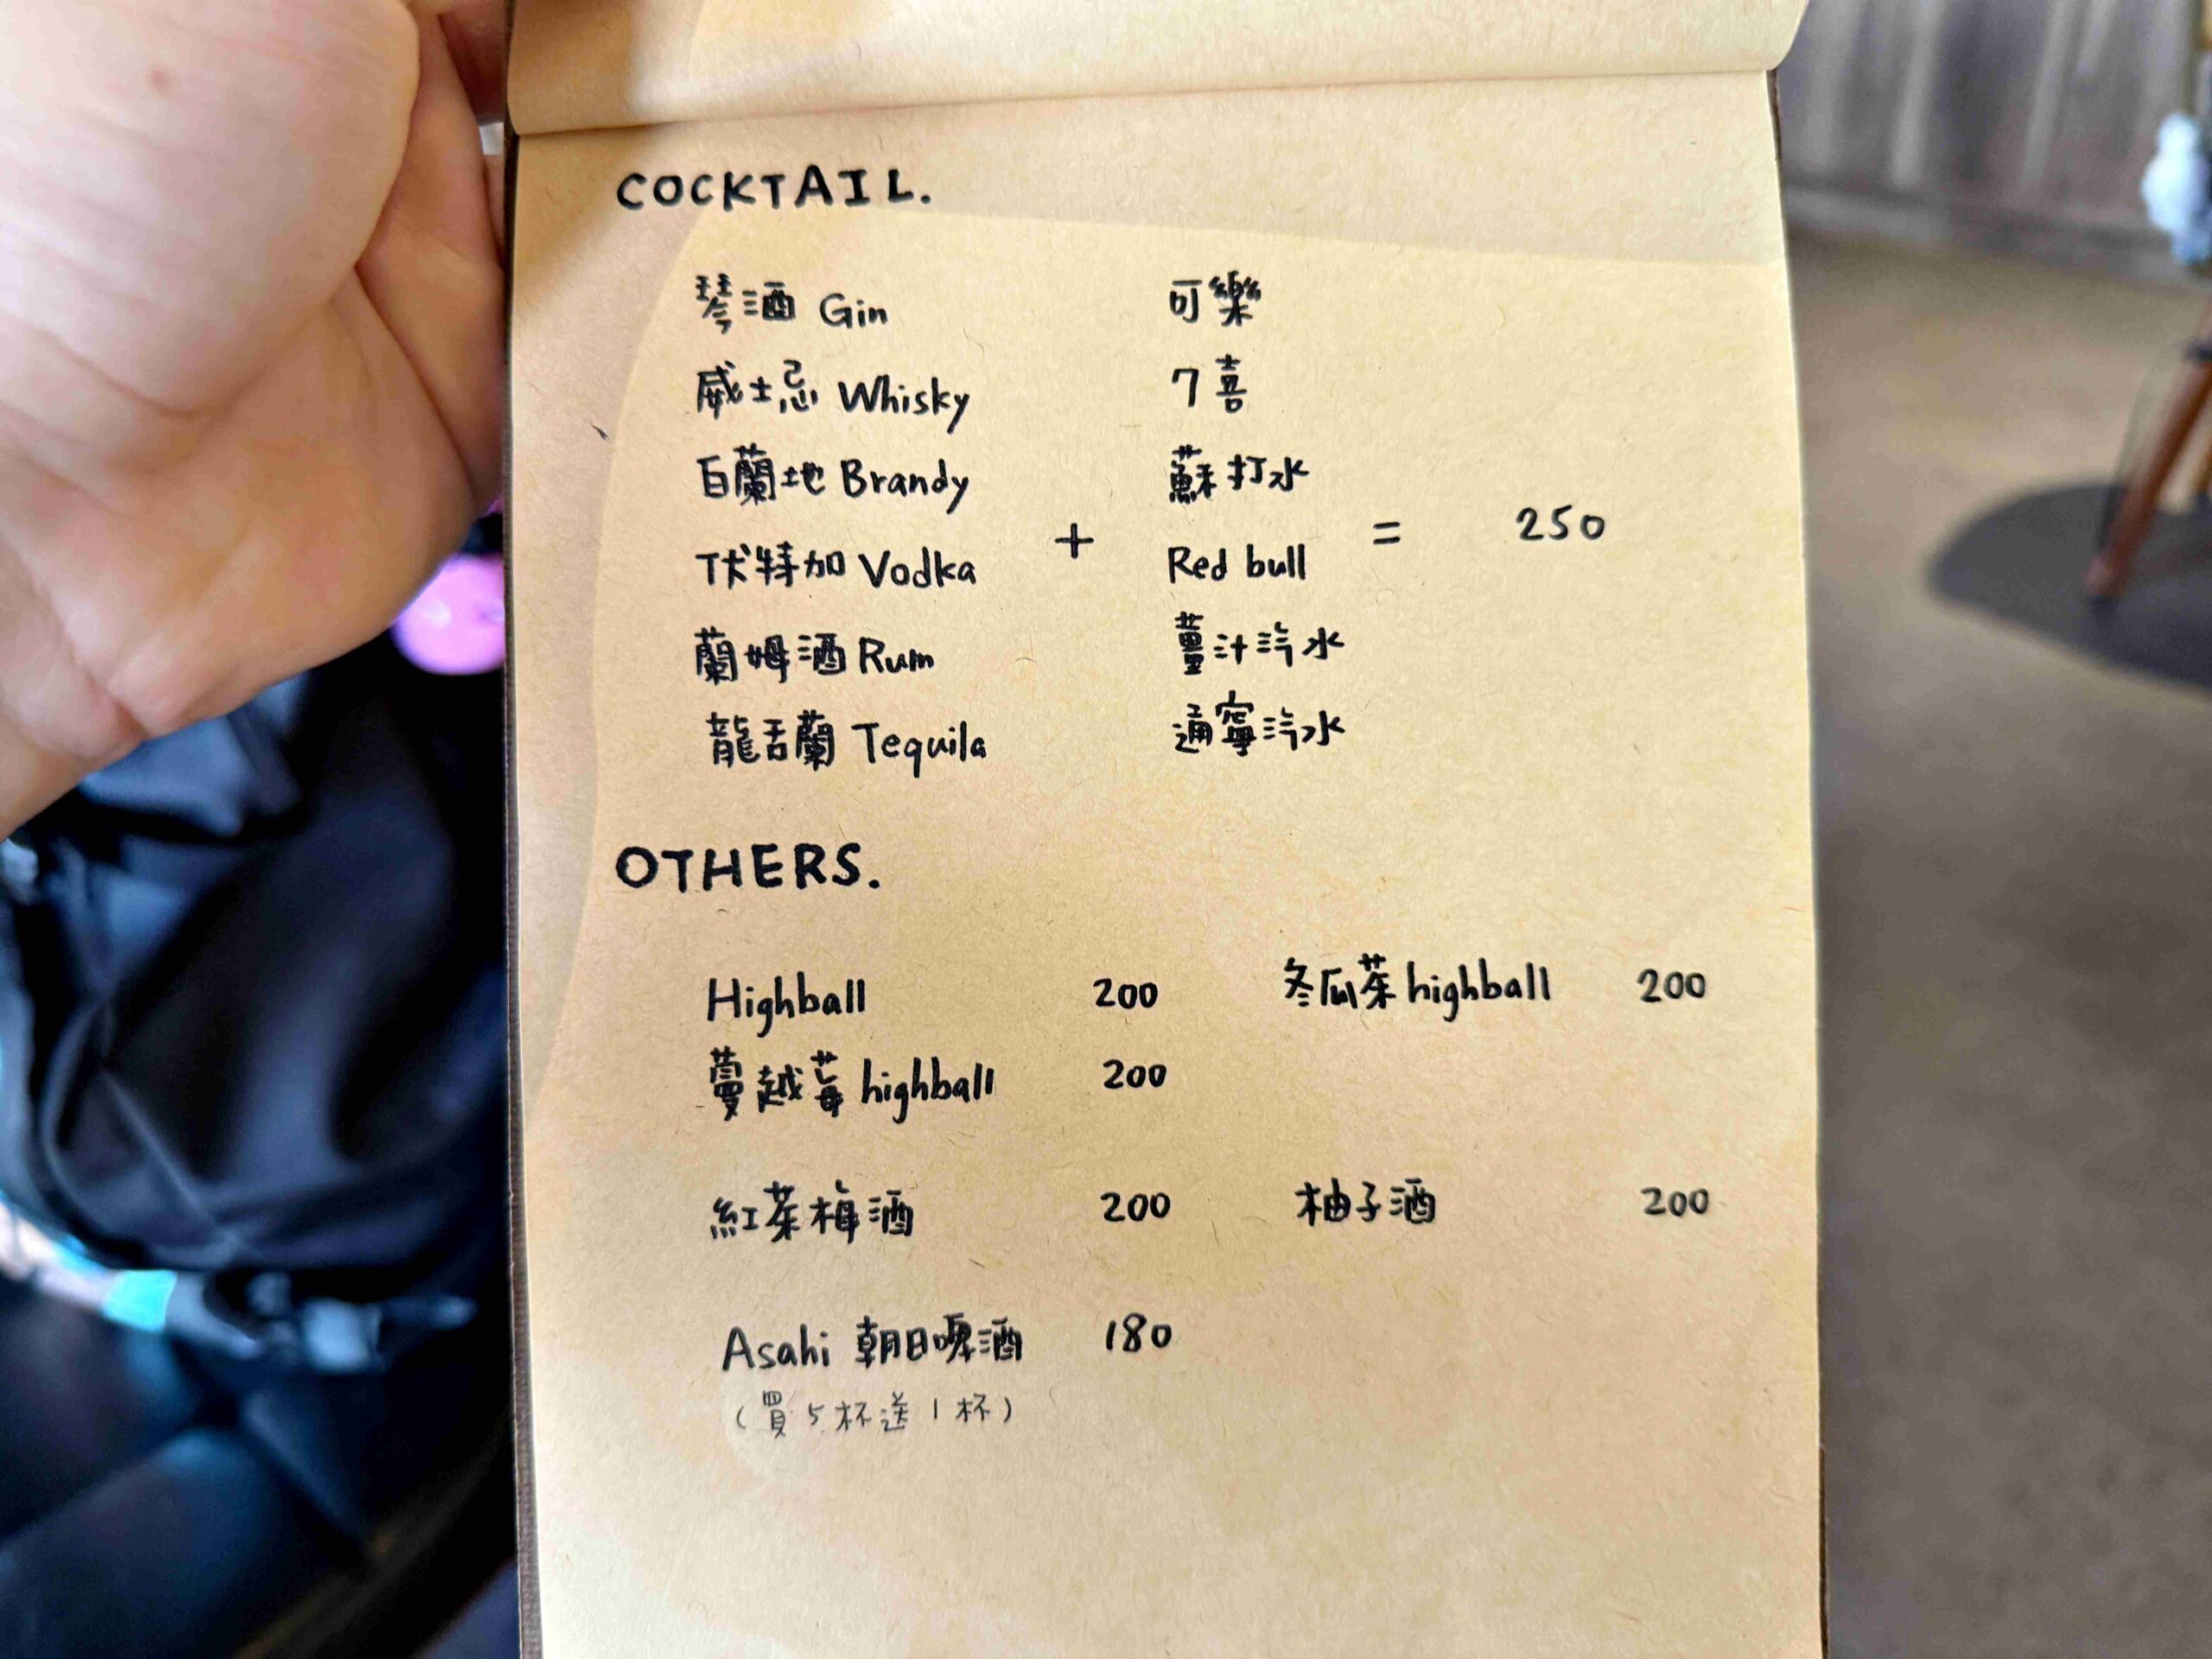 COCKTAIL.
琴酒 Gin 可樂
威士忌 Whisky 7喜
白蘭地 Brandy 蘇打水
+ = 250
伏特加 Vodka Red bull
蘭姆酒 Rum 薑汁汽水
龍舌蘭 Tequila 通寧汽水
OTHERS.
Highball 200 冬瓜茶highball 200
蔓越莓highball 200
紅茶梅酒 200 柚子酒 200
Asahi 朝日啤酒 180
(買5杯送1杯)